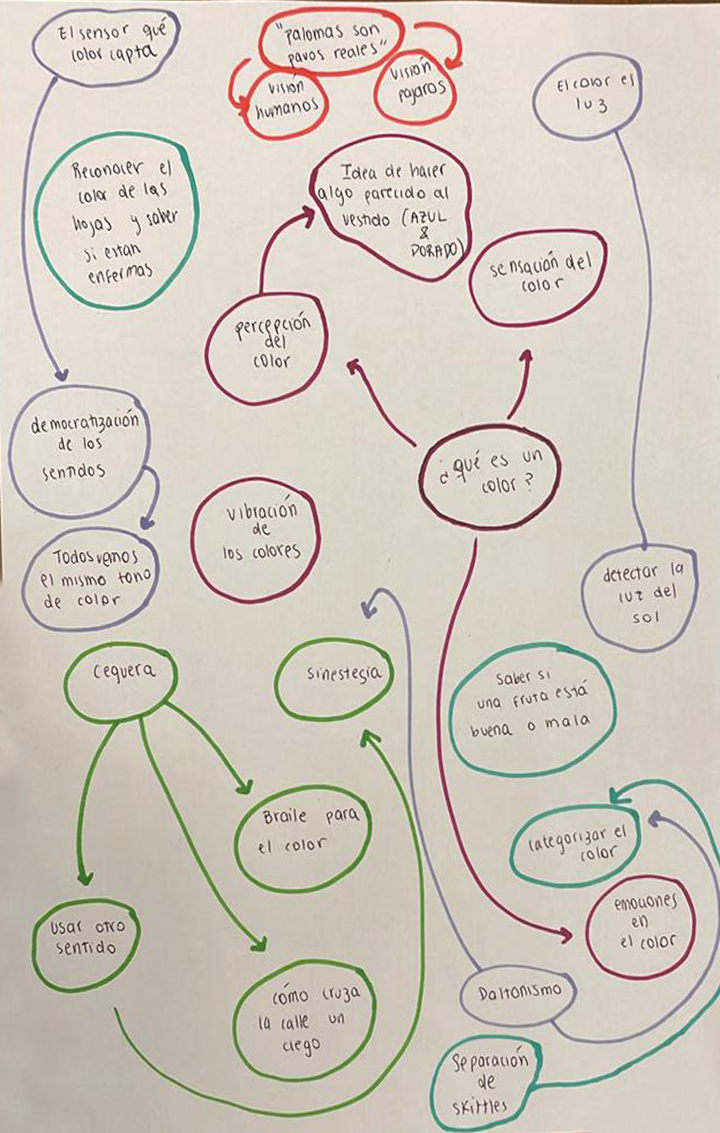 El sensor qué
color capta
"palomas son
pavos reales"
visión
humanos
visión
pajaros
El color es
luz
Reconocer el
color de las
hojas y saber
si estan
enfermas
Idea de hacer
algo parecido al
vestido (AZUL
&
DORADO)
sensación del
color
percepción
del
color
democratización
de los
sentidos
¿qué es un
color?
vibración
de
los colores
Todos vemos
el mismo tono
de color
detectar la
luz del
sol
Ceguera
Sinestegia
Saber si
una fruta está
buena o mala
Braile para
el color
categorizar el
color
usar otro
sentido
emociones
en
el color
Daltonismo
cómo cruza
la calle un
ciego
Separación
de
skittles